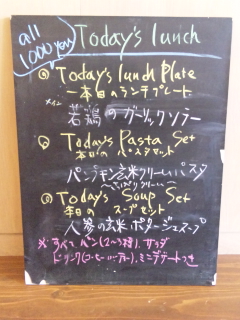 all
1000 yen
Today's lunch
① Today's lunch Plate
ー本日のランチプレート
メイン 若鶏のガーリックソテー
② Today's Pasta Set
本日のパスタセット
パンプキン玄米クリームパスタ
③ Today's Soup Set
本日のスープセット
人参の玄米ポタージュスープ
※すべて、パン(2〜3種)、サラダ
ドリンク(コーヒー)、ミニデザートつき